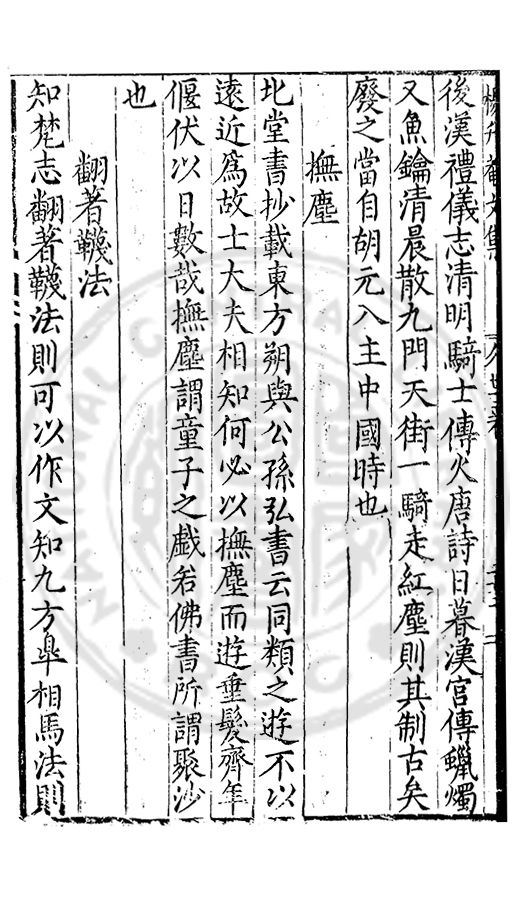 後漢禮儀志清明騎士傳火唐詩日暮漢宮傳蠟燭
又魚鑰清晨散九門天街一騎走紅塵則其制古矣
廢之當自胡元入主中國時也
撫塵
北堂書抄載東方朔與公孫弘書云同類之遊不以
遠近爲故士大夫相知何必以撫塵而遊垂髮齊年
偃伏以日數哉撫塵謂童子之戱若佛書所謂聚沙
也
翻著韈法
知梵志翻著韈法則可以作文知九方臯相馬法則